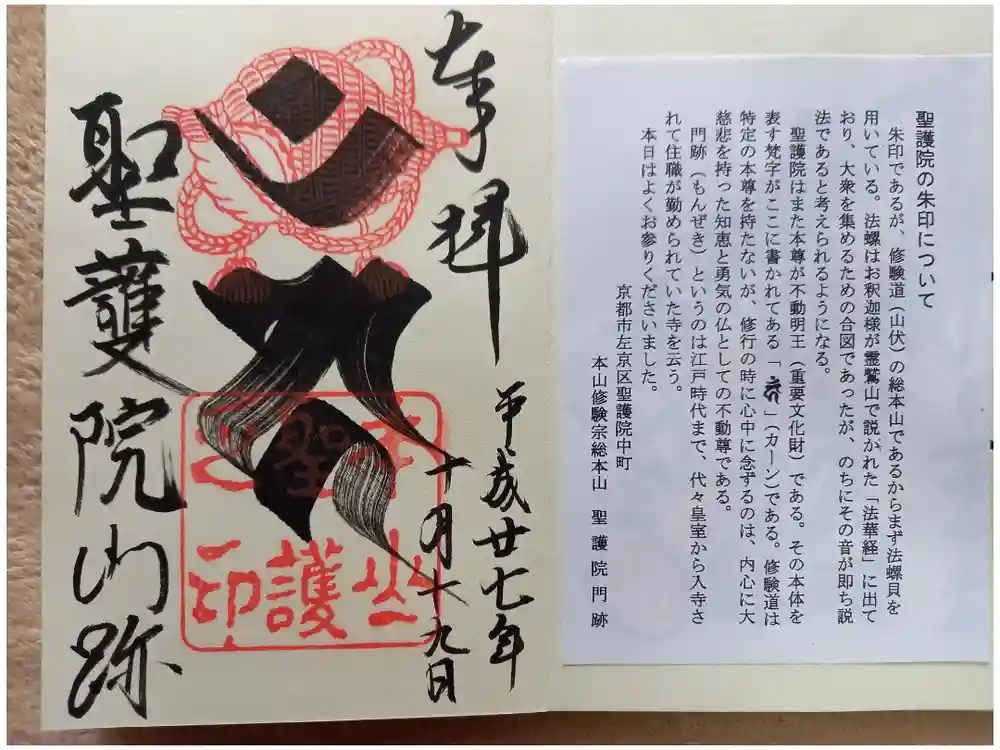 聖護院の朱印について
朱印であるが、修験道(山伏)の総本山であるからまず法螺貝を
用いている。法螺はお釈迦様が霊鷲山で説かれた「法華経」に出て
おり、大衆を集めるための合図であったが、のちにその音が即ち説
法であると考えられるようになる。
聖護院はまた本尊が不動明王(重要文化財)である。その本体を
表す梵字がここに書かれてある「 」(カーン)である。修験道は
特定の本尊を持たないが、修行の時に心中に念ずるのは、内心に大
慈悲を持った知恵と勇気の仏としての不動尊である。
門跡(もんぜき)というのは江戸時代まで、代々皇室から入寺さ
れて住職が勤められていた寺を云う。
本日はよくお参りくださいました。
京都市左京区聖護院中町
本山修験宗総本山 聖護院門跡
奉拝
平成廿七年
十月十九日
本山
聖護
之印
聖護院門跡